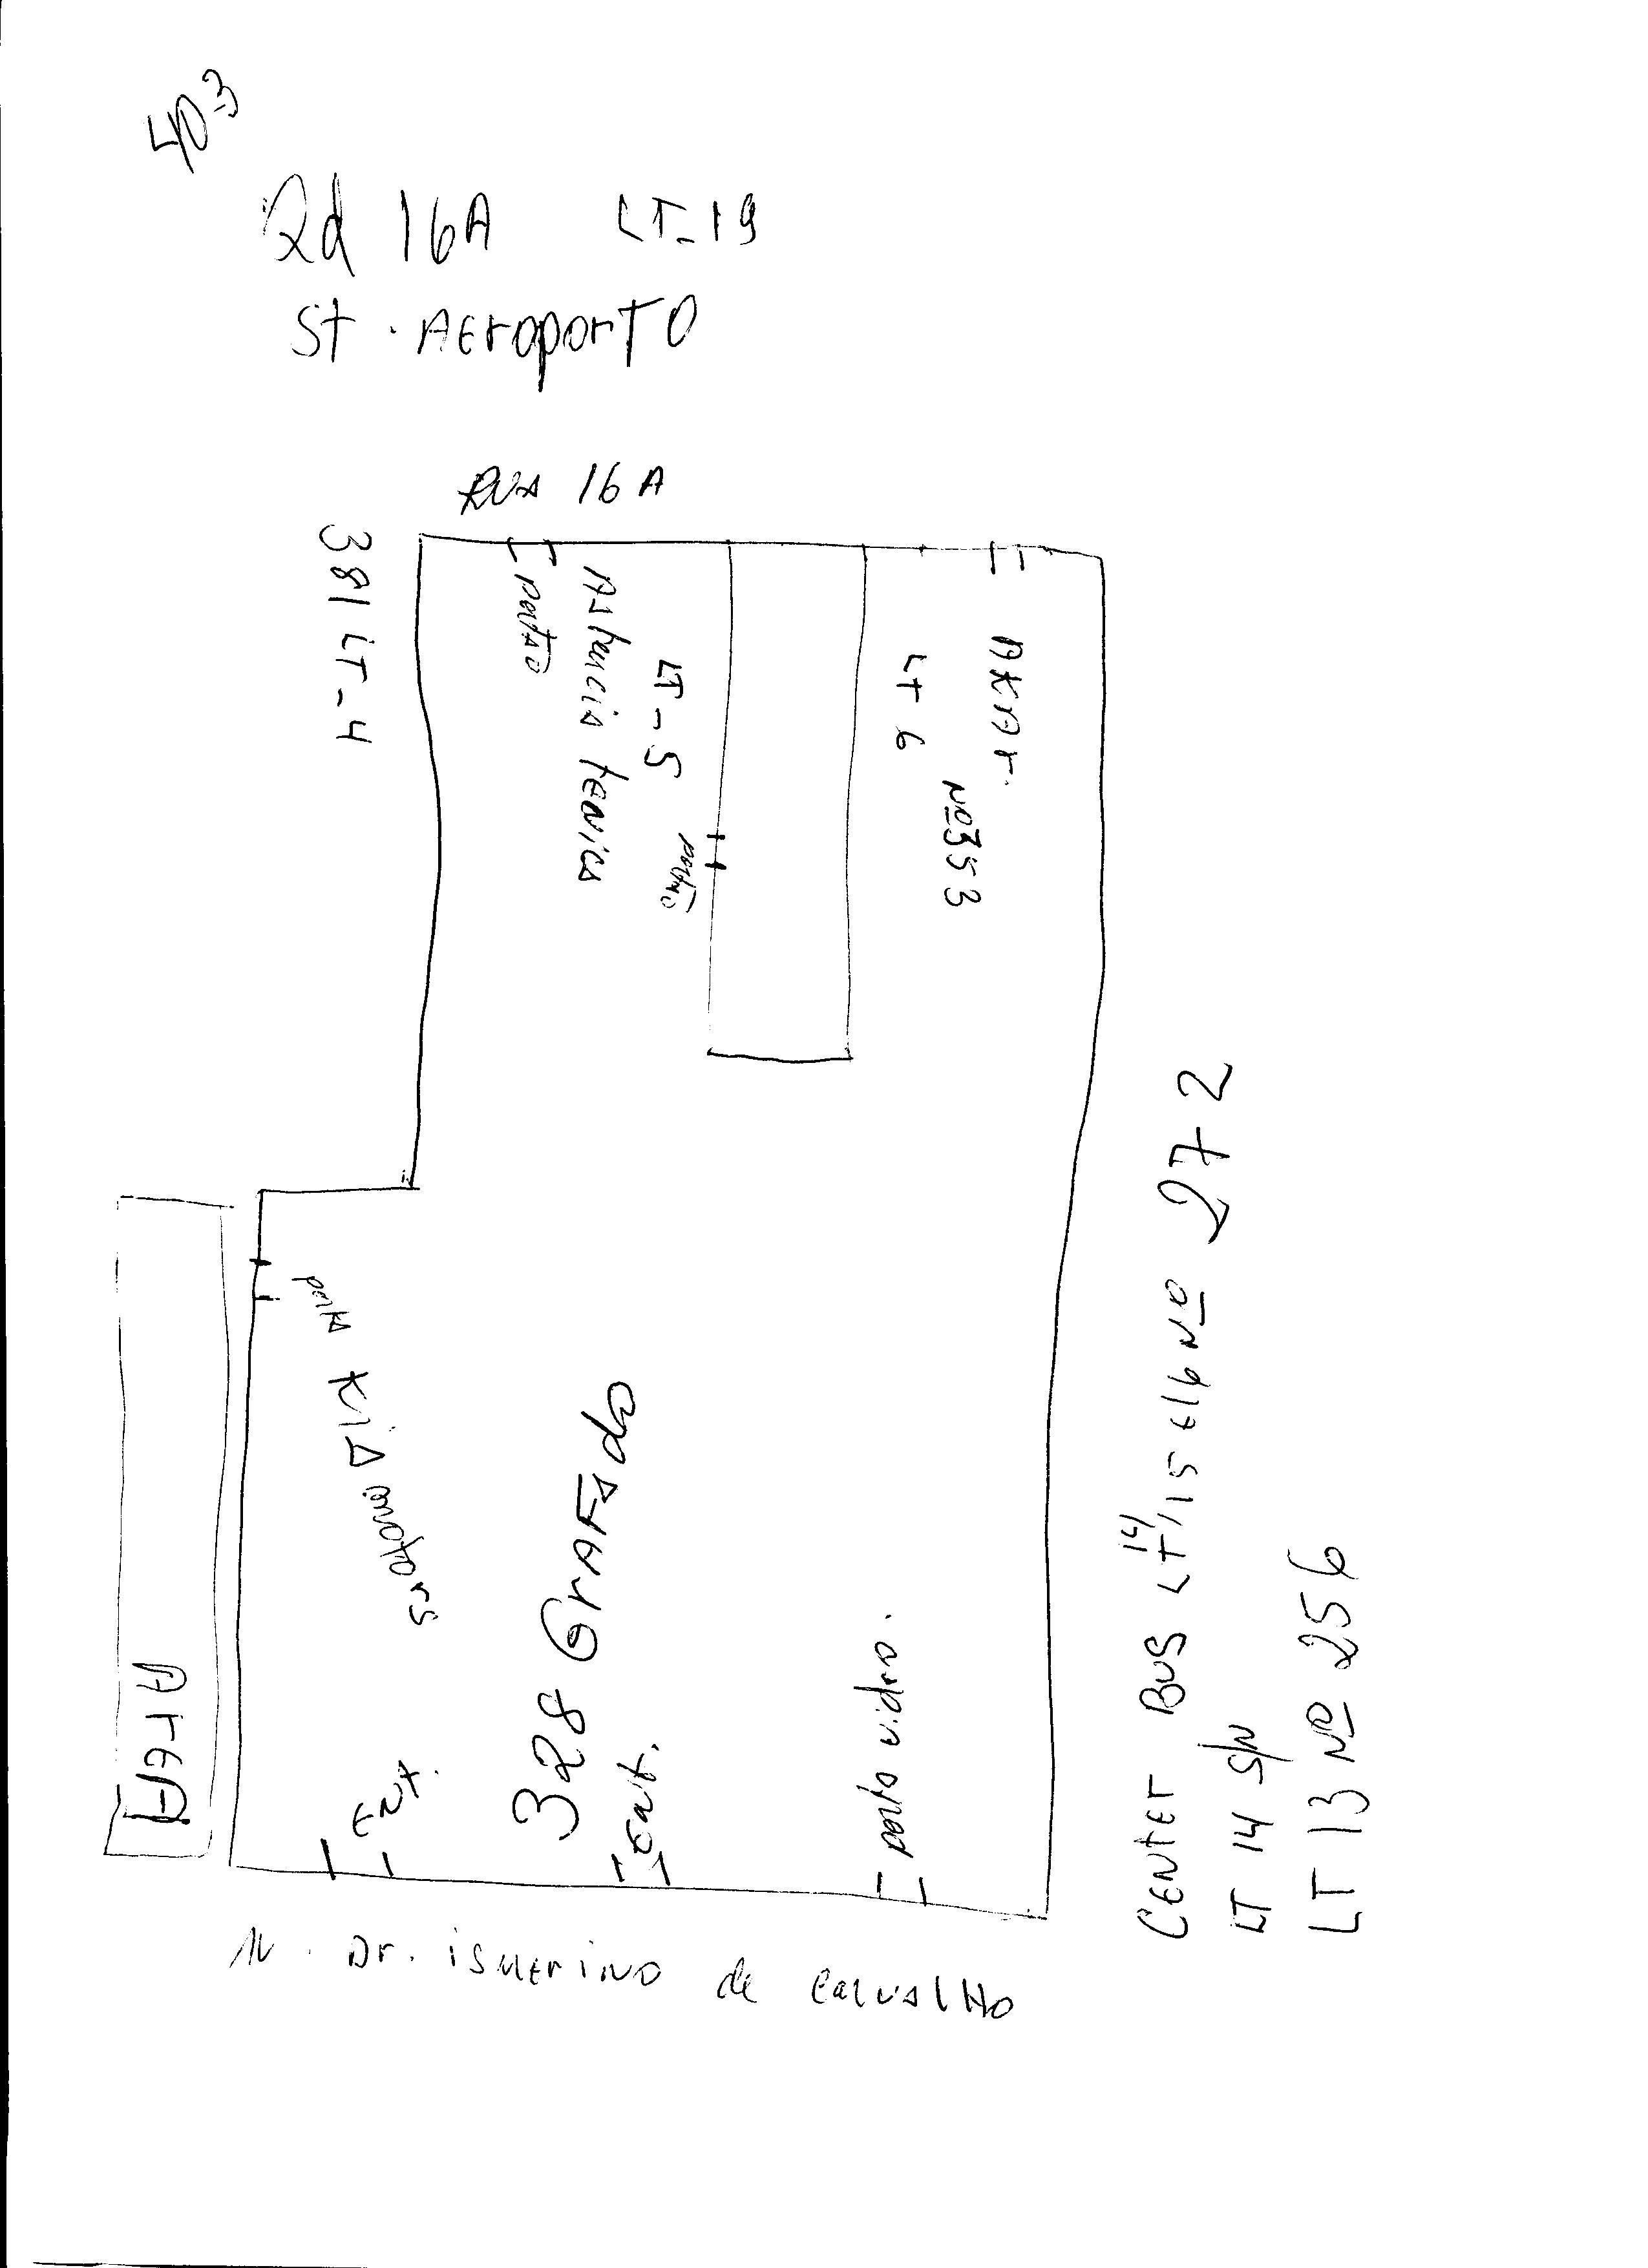 403
Qd 16A LT-19
St. AEroporTO
RUA 16A
381 LT-4
portão
Astencia tenica
LT-5
portão
LT 6
AKAr.
Nº 353
porta
KIA motors
328 GrAFado
ENt.
Ent.
porta vidro.
ArEA
AV. Dr. isMErino de carvalHo
CENtEr BUS LT 14/15 E 16 Nº 272
LT 14 S/N
LT 13 Nº 256